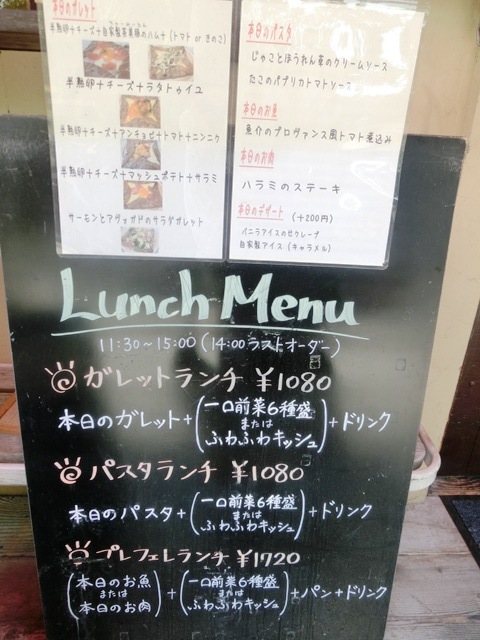 本日のガレット
半熟卵+チーズ+自家製茶美豚のハム+(トマト or きのこ)
半熟卵+チーズ+ラタトゥイユ
半熟卵+チーズ+アンチョビ+トマト+ニンニク
半熟卵+チーズ+マッシュポテト+サラミ
サーモンとアヴォガドのサラダガレット
本日のパスタ
じゃことほうれん草のクリームソース
たこのパプリカトマトソース
本日のお魚
魚介のプロヴァンス風トマト煮込み
本日のお肉
ハラミのステーキ
本日のデザート (+200円)
バニラアイスのせクレープ
自家製アイス (キャラメル)
Lunch Menu
11:30~15:00 (14:00ラストオーダー)
ガレットランチ ¥1080
本日のガレット+(一口前菜6種盛
または
ふわふわキッシュ)+ドリンク
パスタランチ ¥1080
本日のパスタ+(一口前菜6種盛
または
ふわふわキッシュ)+ドリンク
プレフェレランチ ¥1720
(本日のお魚
または
本日のお肉)+(一口前菜6種盛
または
ふわふわキッシュ)+パン+ドリンク